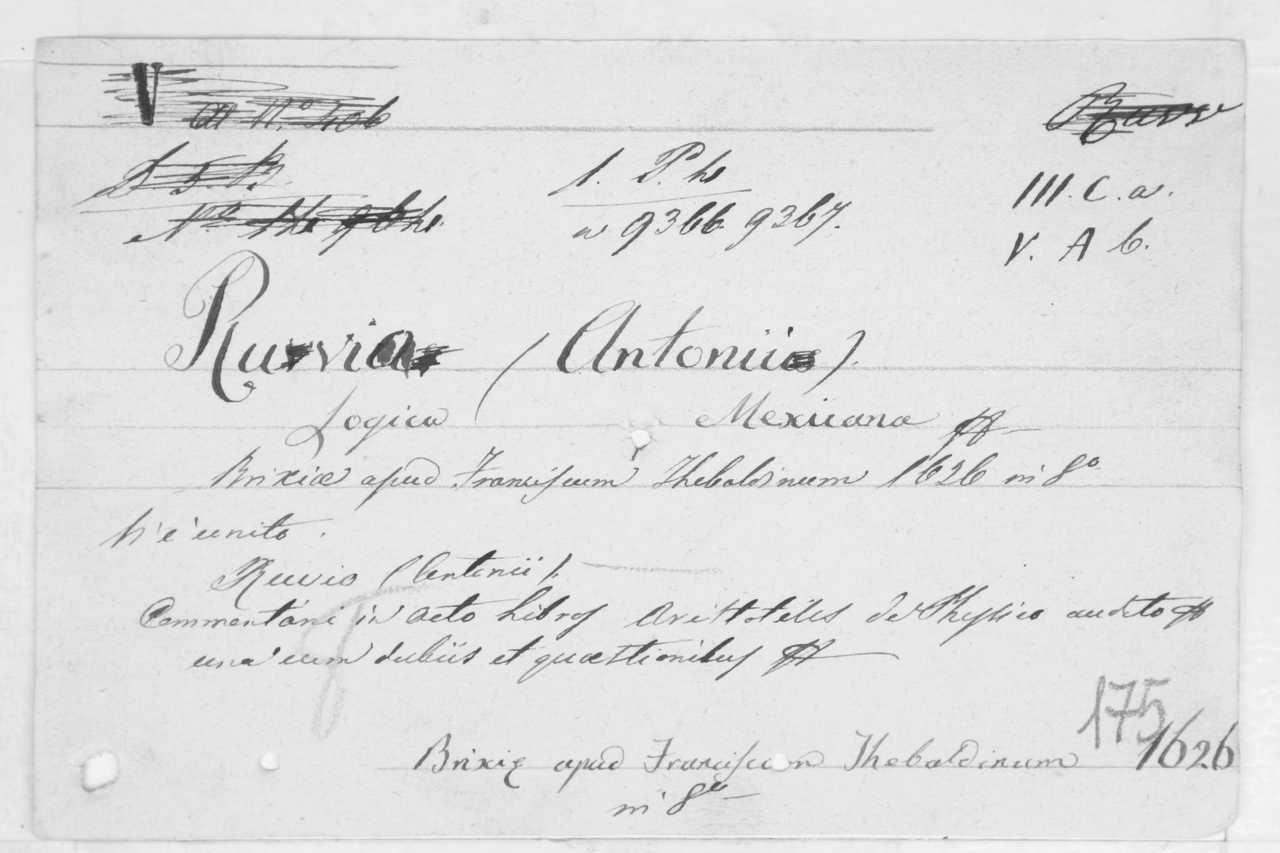 V
1. P. h
III. C. a.
a 9366 9367.
V. A b.
Ruvio (Antonii).
Logica Mexicana
Brixiæ apud Franciscum Thebaldinum 1626 in 8º
Vi è unito.
Ruvio (Antonii).
Commentarii in octo Libros Aristoteles de Physico audito
una cum dubiis et quæstionibus
175
Brixię apud Franciscum Thebaldinum 1626
in 8º